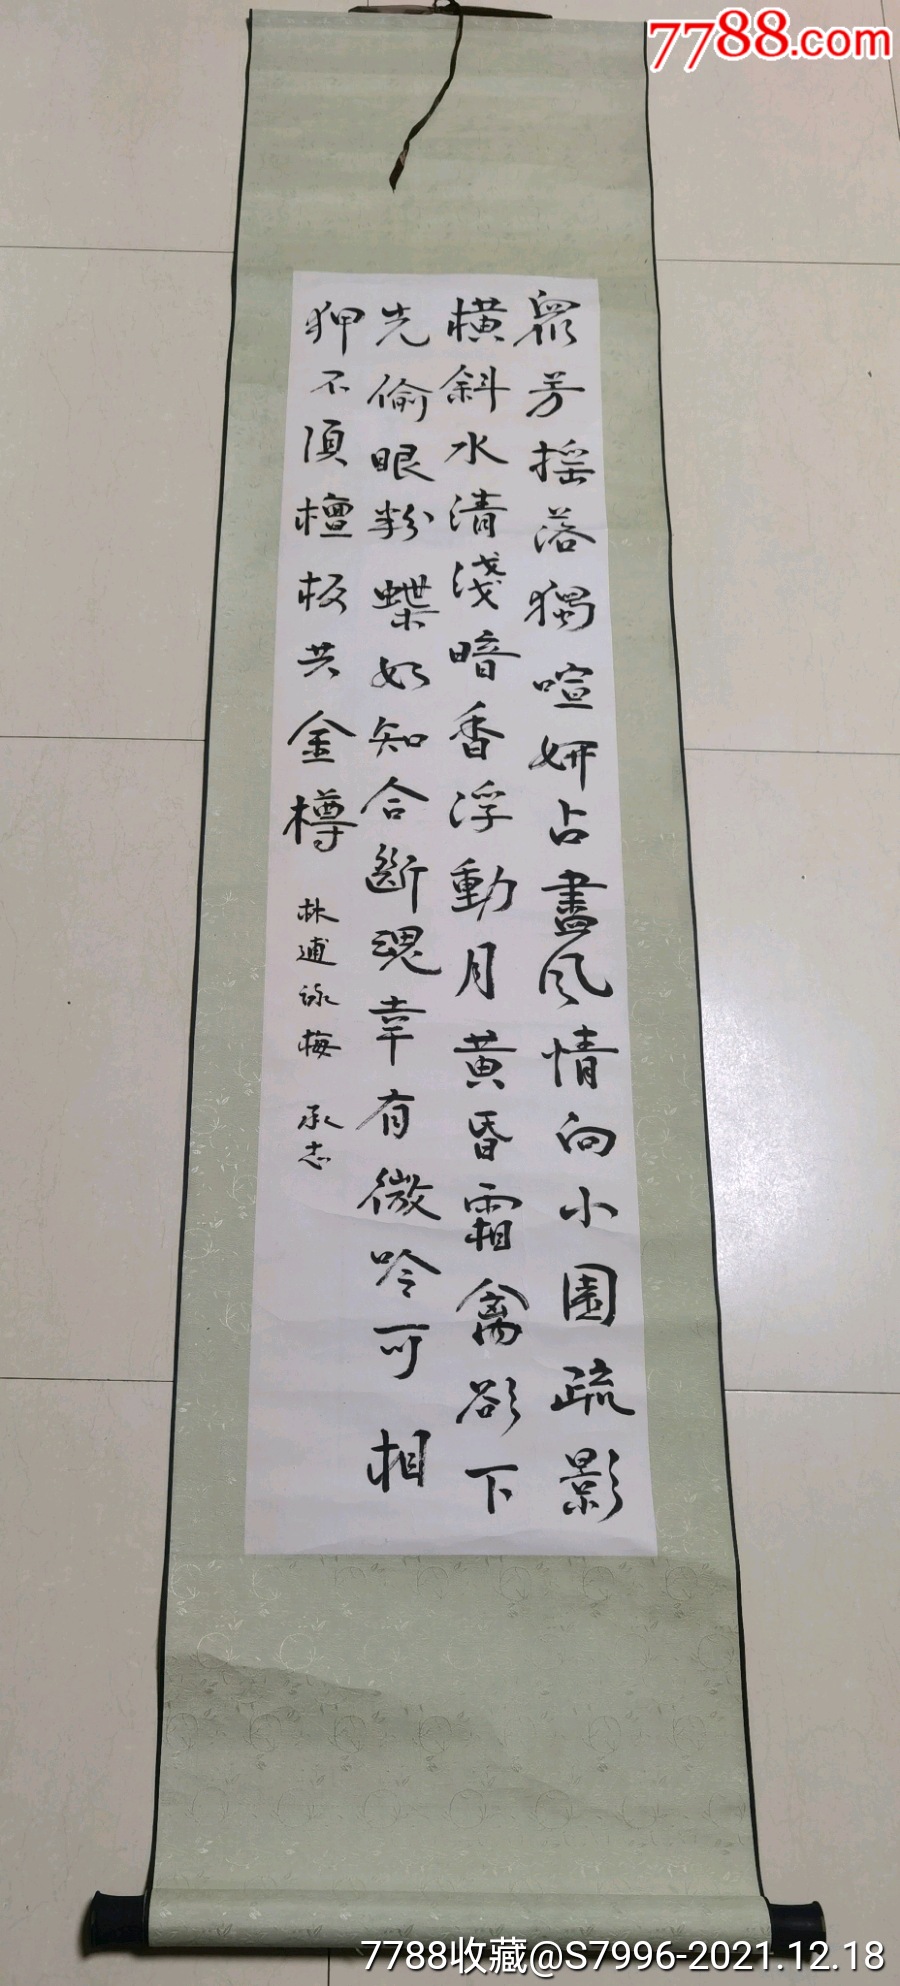 7788.com
眾芳揺落獨喧妍占盡風情向小園疏影
橫斜水清淺暗香浮動月黃昏霜禽欲下
先偷眼粉蝶如知合斷魂幸有微吟可相
狎不須檀板共金樽
林逋詠梅 承志
7788收藏@S7996-2021.12.18